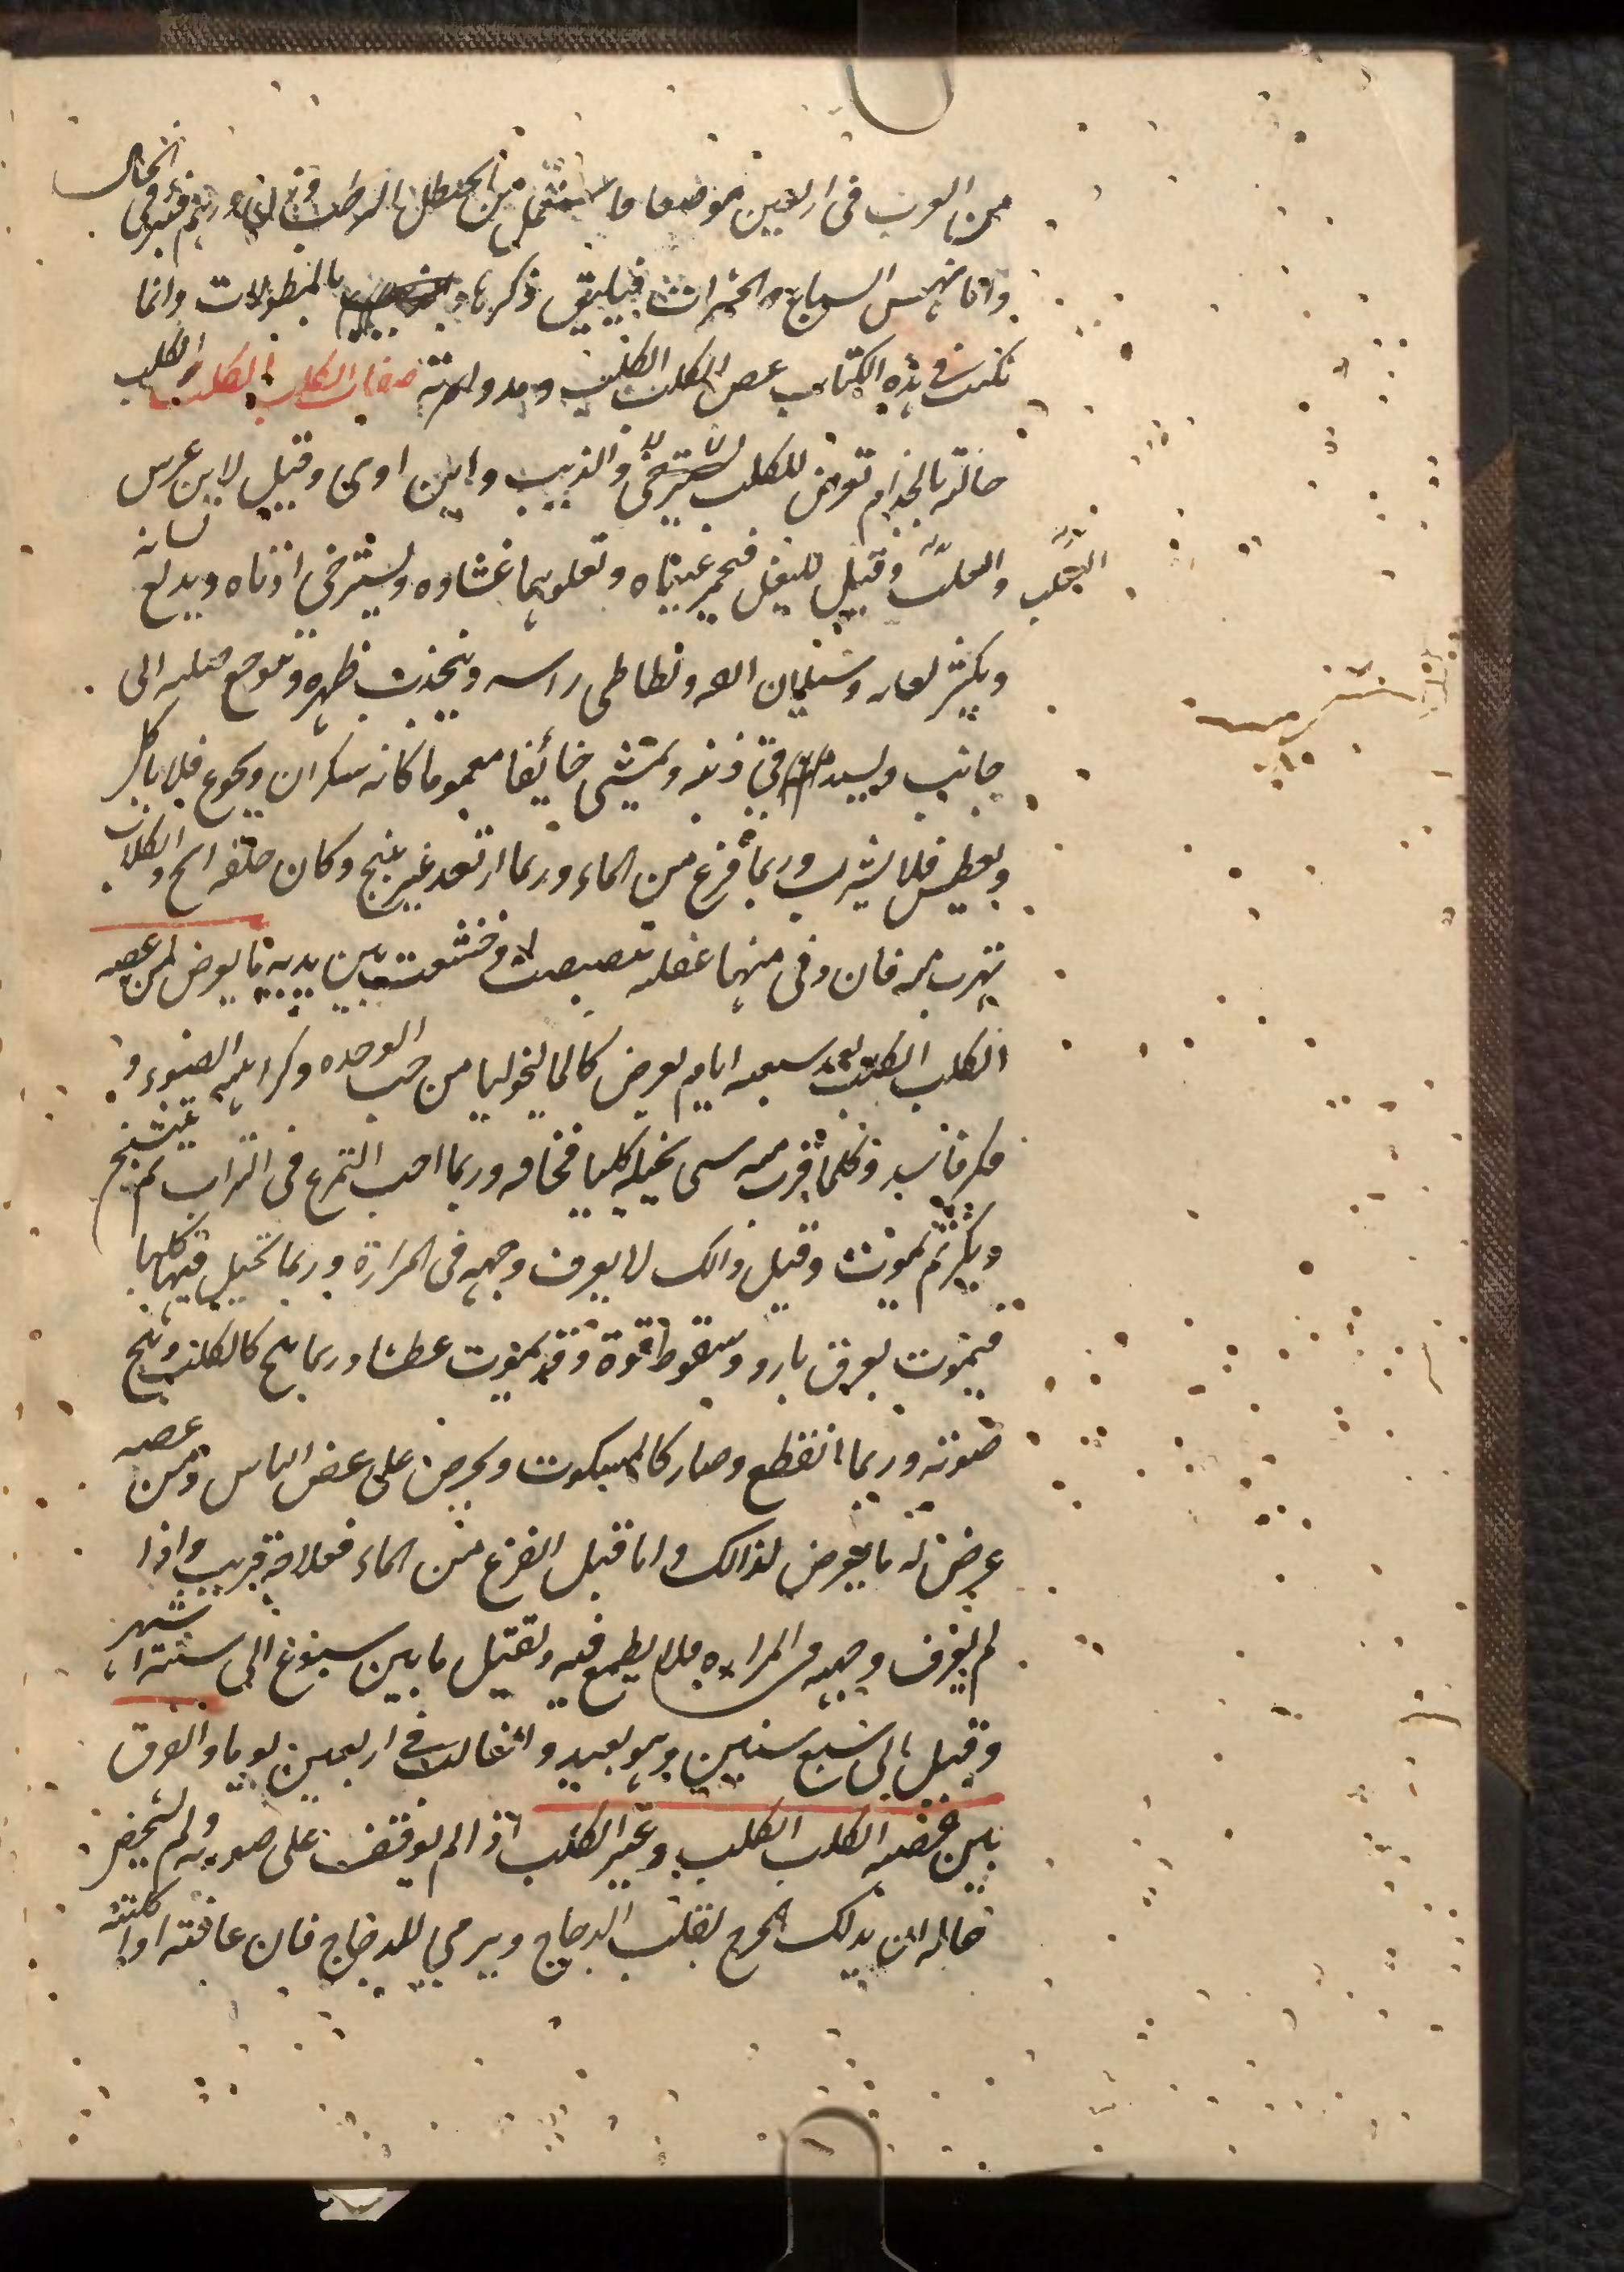 من العرب فى اربعين موضعا فاستعمل من الحنظل الرطب وزن درهم فبرئ فى الحال
واما نهس السباع والحشرات فيليق ذكرها بالمطولات وانما
نكتب فى هذه الكتاب عض الكلب الكلب ومداواته صفات الكلب الكلب والكلب
حالة كالجذام تعرض للكلب والذيب وابن اوى وقيل لابن عرس
والثعلب وقيل للبغل فيحمر عيناه وتعلوهما غشاوه ويسترخى اذناه ويدلع لسانه
ويكثر لعابه وسيلان انفه ويطاطى راسه ويتحدب ظهره ويتعوج صلبه الى
جانب ذنبه ويمشى خائفا مغموما كانه سكران ويجوع فلا ياكل
ويعطش فلا يشرب وربما فزع من الماء وربما ارتعد غير ينبح وكان صوته ابح والكلاب
تهرب منه فان دنى منها غفلة تبصبصت له وخشعت بين يديه ما يعرض لمن عضه
الكلب الكلب بعد سبعه ايام يعرض كالماليخوليا من حب الوحده وكراهيه الضوء و
فكر فاسد وكلما قرب منه شى تخيله كلبا فخافه وربما احب التمرغ فى التراب ثم يتشنج
ويكزثم يموت وقبل ذالك لا يعرف وجهه فى المراة وربما تخيل فيها كلبا
فيموت بعرق بارد وسقوط قوة وقد يموت عطشا وربما نبح كالكلب وبح
صوته وربما انقطع وصار كالمسكوت ويحرص على عض الناس ومن عضه
عرض له ما يعرض لذالك واما قبل الفزع من الماء فعلاجه قريب واذا
لم يعرف وجهه فى المراه فلا يطمع فيه ويقتل ما بين سبوع الى ستة اشهر
وقيل الى سبع سنين وهو بعيد والغالب فى اربعين يوما والفرق
بين عضه الكلب الكلب وغير الكلب اذا لم يوقف على صورته ولم يتحضر
حاله ان يدلك الجرح بقلب الدجاج ويرمى للدجاج فان عافته او اكلته